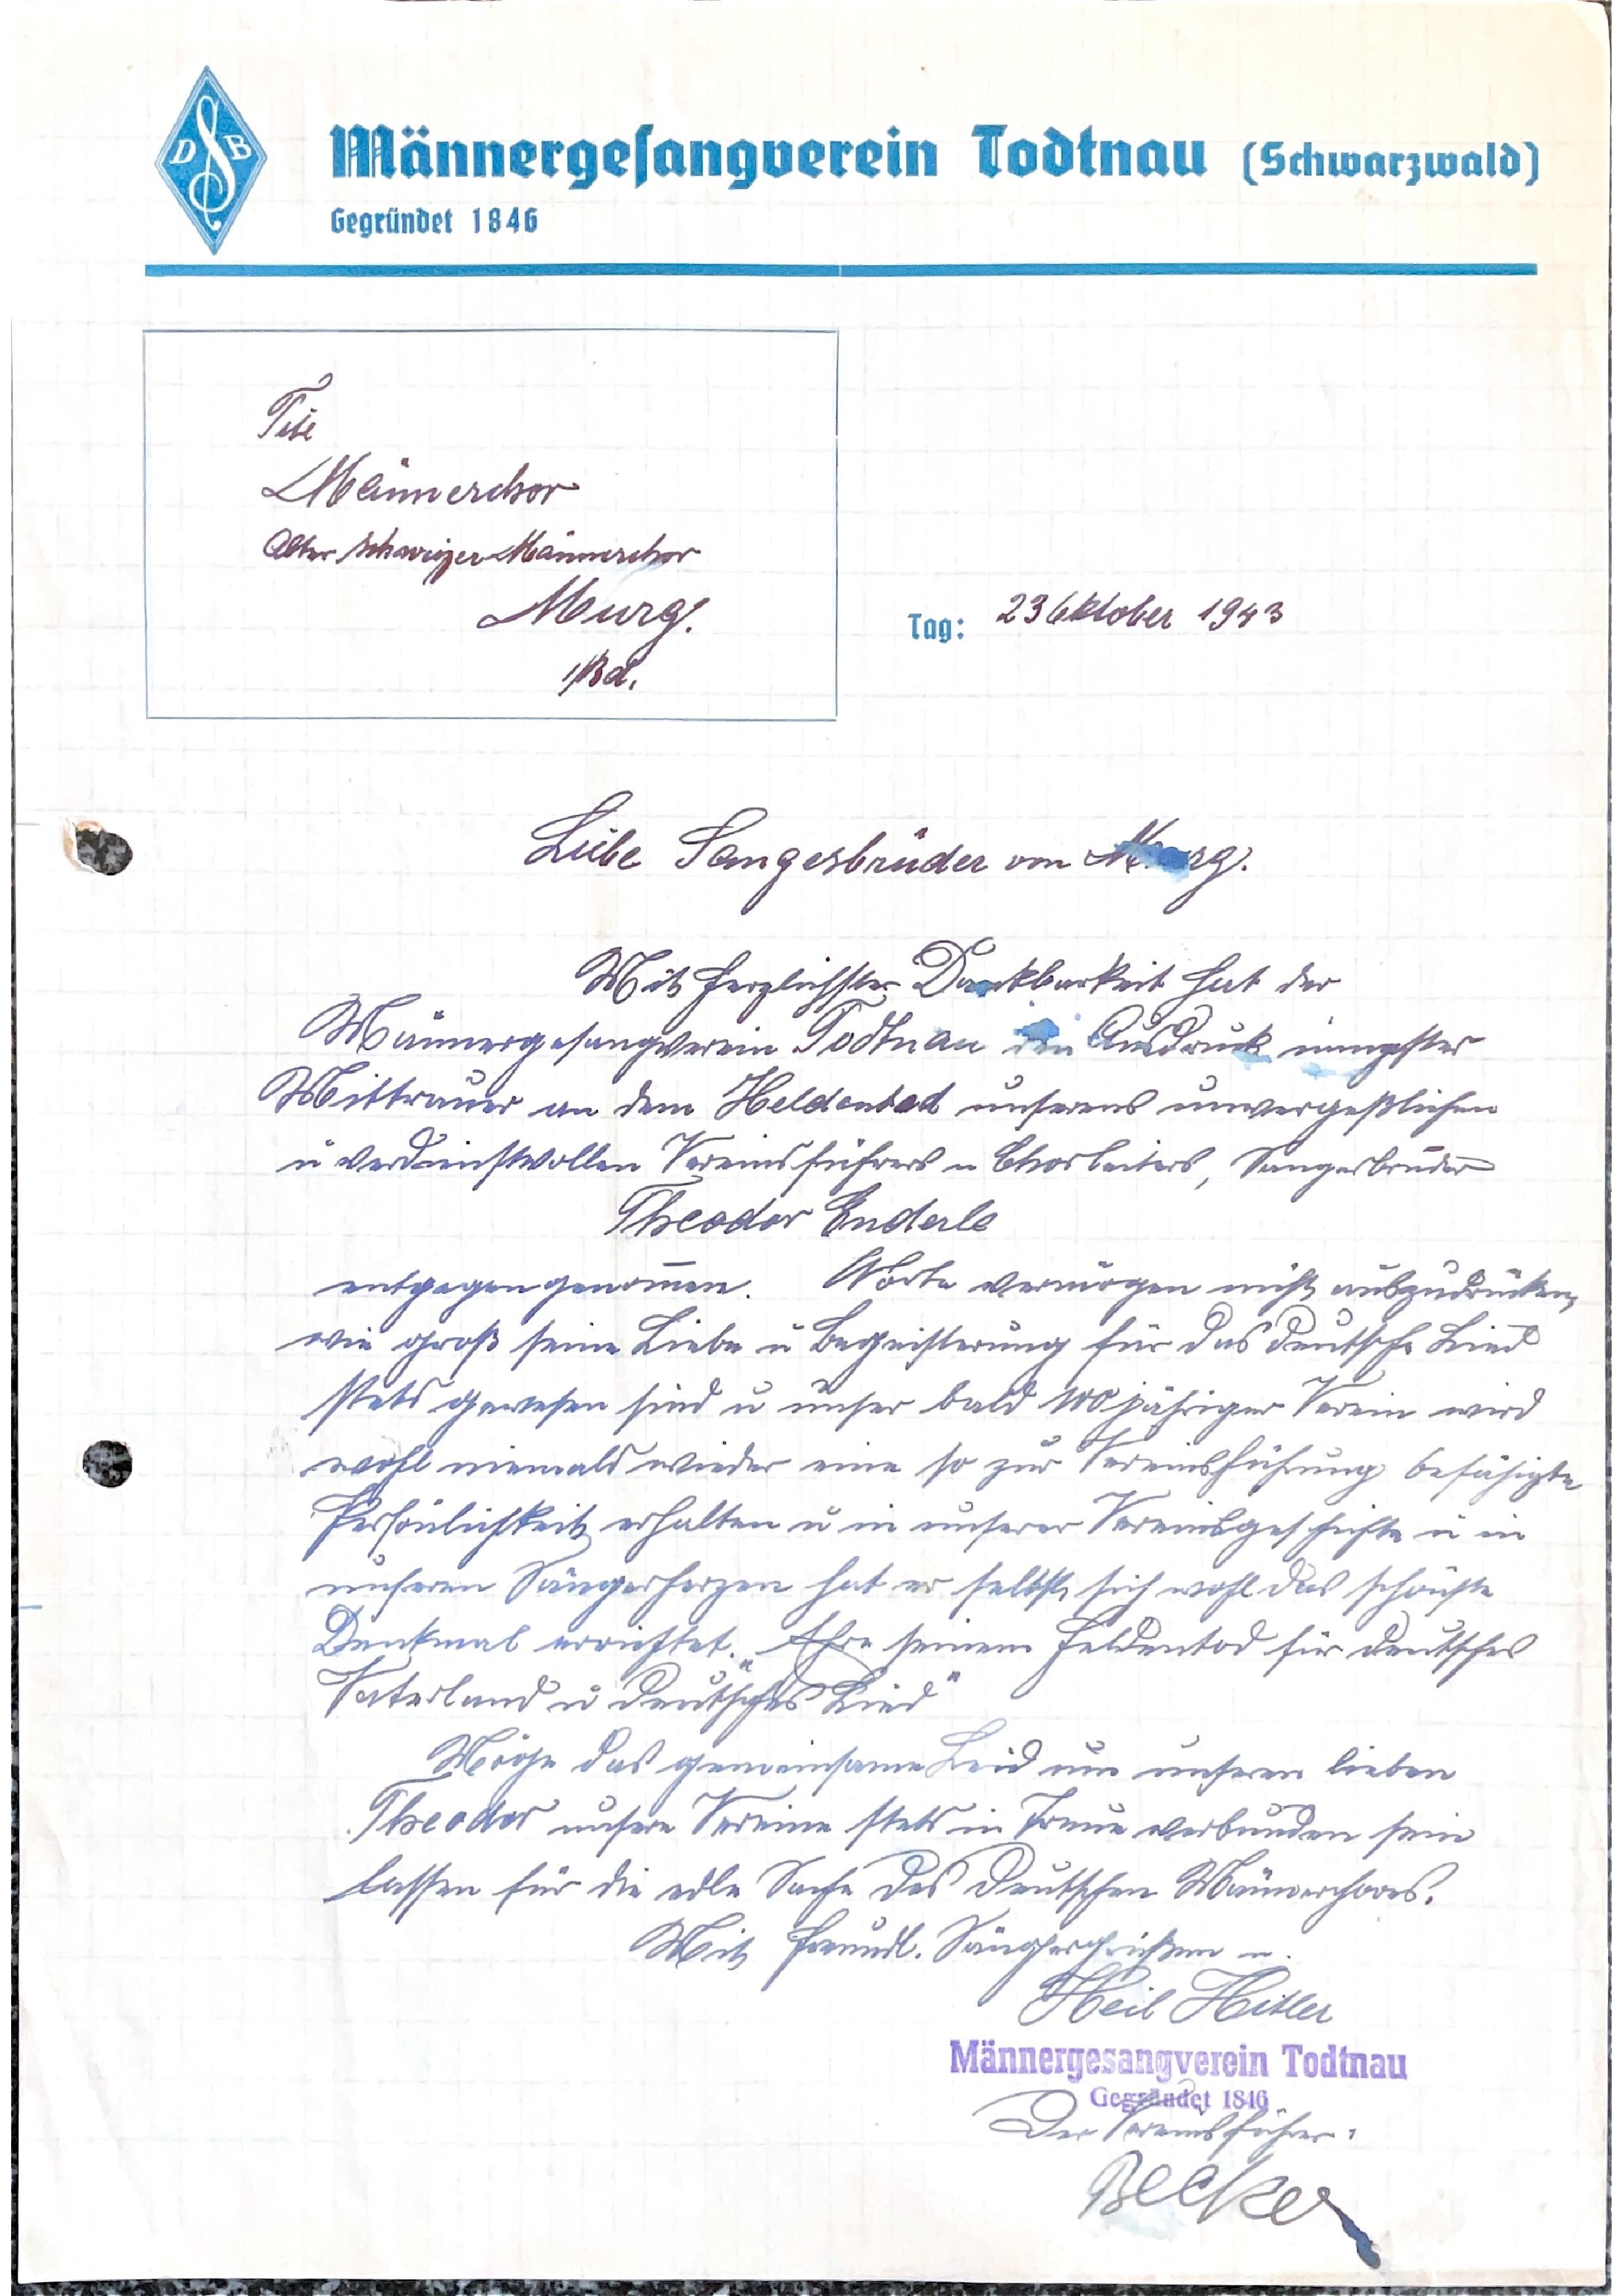 DSB
Männergesangverein Todtnau (Schwarzwald)
Gegründet 1846
Titl
Männerchor
Alter Schweizer Männerchor
Murg.
i/Bd.
Tag: 23 Oktober 1943
Liebe Sangesbrüder von Murg.
Mit herzlichster Dankbarkeit hat der
Männergesangverein Todtnau den Ausdruck innigster
Mittrauer an dem Heldentod unseres unvergeßlichen
u verdienstvollen Vereinsführers u Chorleiters, Sangesbruder
Theodor Enderle
entgegengenommen. Worte vermögen nicht auszudrücken,
wie groß seine Liebe u Begeisterung für das deutsche Lied
stets gewesen sind u unser bald 100 jähriger Verein wird
wohl niemals wieder eine so zur Vereinsführung befähigte
Persönlichkeit erhalten u in unserer Vereinsgeschichte u in
unseren Sängerherzen hat er selbst sich wohl das schönste
Denkmal errichtet. „Ehre seinem Heldentod für deutsches
Vaterland u deutsches Lied"
Möge das gemeinsame Leid um unseren lieben
Theodor unsere Vereine stets in Treue verbunden sein
lassen für die edle Sache des Deutschen Männerchores.
Mit freundl. Sängergrüßen u.
Heil Hitler
Männergesangverein Todtnau
Gegründet 1846
Der Vereinsführer:
Becker